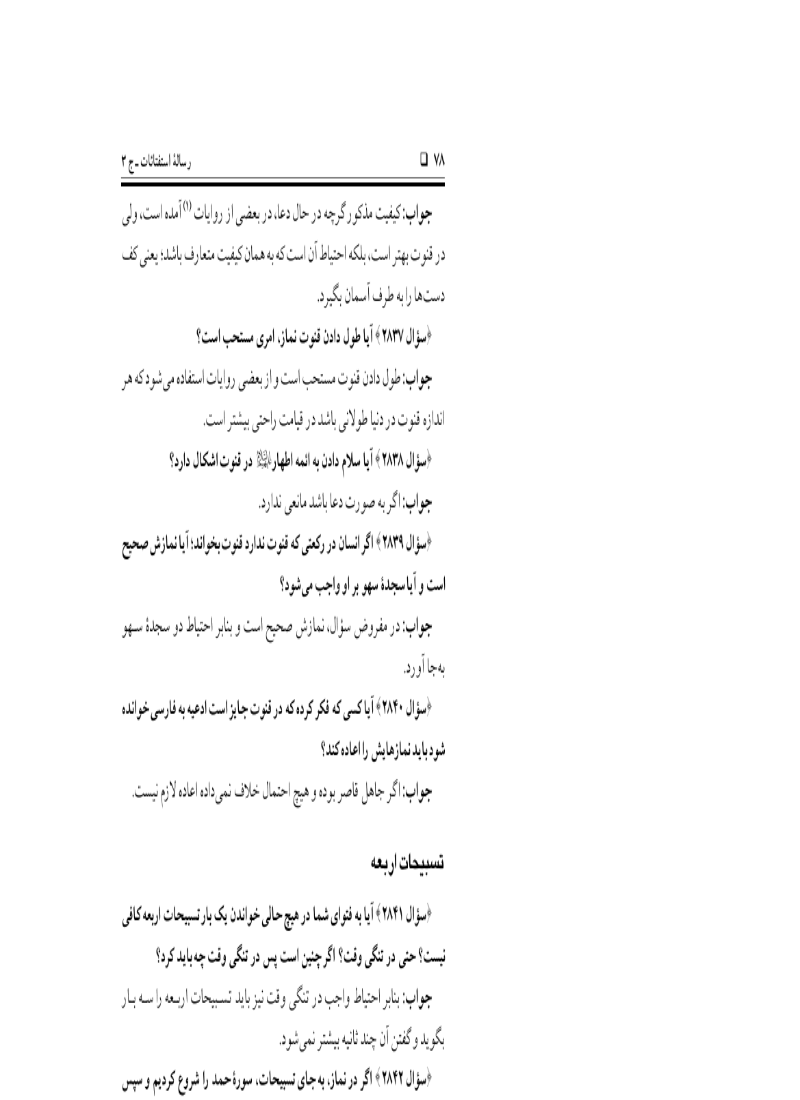 ۷۸ ❑ رسالهٔ استفتائات ـ ج ۳
جواب: کیفیت مذکور گرچه در حال دعا، در بعضی از روایات (۱) آمده است، ولی
در قنوت بهتر است، بلکه احتیاط آن است که به همان کیفیت متعارف باشد؛ یعنی کف
دست‌ها را به طرف آسمان بگیرد.
﴿سؤال ۲۸۳۷﴾ آیا طول دادن قنوت نماز، امری مستحب است؟
جواب: طول دادن قنوت مستحب است و از بعضی روایات استفاده می‌شود که هر
اندازه قنوت در دنیا طولانی باشد در قیامت راحتی بیشتر است.
﴿سؤال ۲۸۳۸﴾ آیا سلام دادن به ائمه اطهار در قنوت اشکال دارد؟
جواب: اگر به صورت دعا باشد مانعی ندارد.
﴿سؤال ۲۸۳۹﴾ اگر انسان در رکعتی که قنوت ندارد قنوت بخواند؛ آیا نمازش صحیح
است و آیا سجدهٔ سهو بر او واجب می‌شود؟
جواب: در مفروض سؤال، نمازش صحیح است و بنابر احتیاط دو سجدهٔ سهو
به‌جا آورد.
﴿سؤال ۲۸۴۰﴾ آیا کسی که فکر کرده که در قنوت جایز است ادعیه به فارسی خوانده
شود باید نمازهایش را اعاده کند؟
جواب: اگر جاهل قاصر بوده و هیچ احتمال خلاف نمی‌داده اعاده لازم نیست.
تسبیحات اربعه
﴿سؤال ۲۸۴۱﴾ آیا به فتوای شما در هیچ حالی خواندن یک بار تسبیحات اربعه کافی
نیست؟ حتی در تنگی وقت؟ اگر چنین است پس در تنگی وقت چه باید کرد؟
جواب: بنابر احتیاط واجب در تنگی وقت نیز باید تسبیحات اربعه را سه بار
بگوید و گفتن آن چند ثانیه بیشتر نمی‌شود.
﴿سؤال ۲۸۴۲﴾ اگر در نماز، به‌جای تسبیحات، سورهٔ حمد را شروع کردیم و سپس